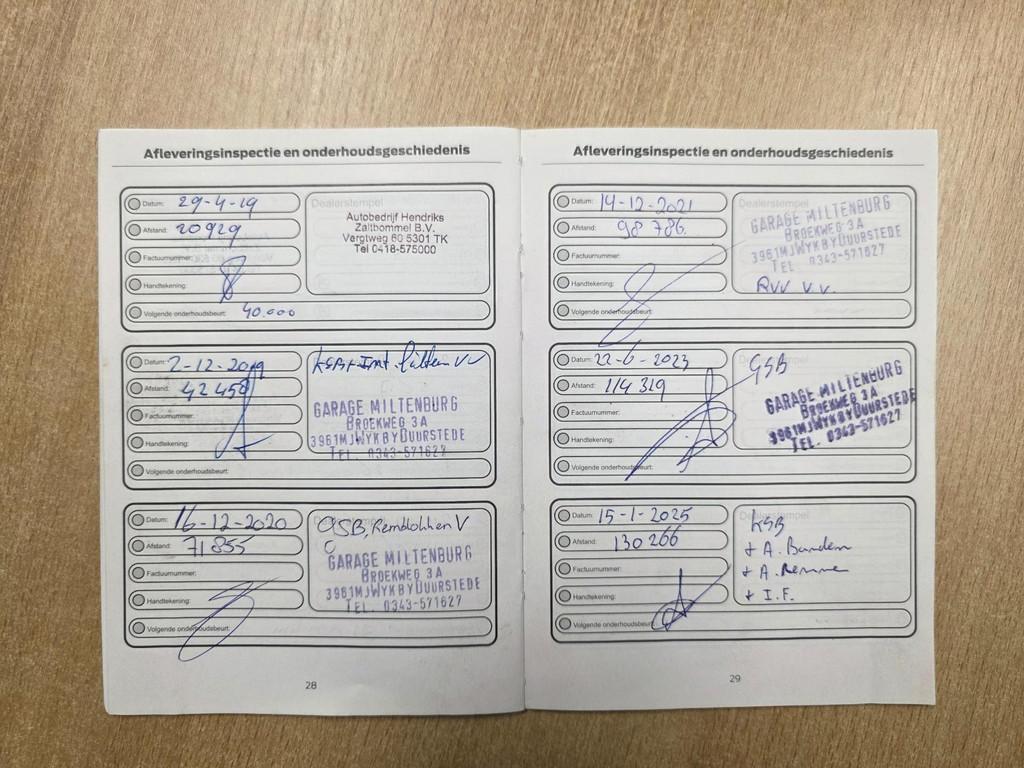 Afleveringsinspectie en onderhoudsgeschiedenis
Datum: 29-4-19
Afstand: 20929
Factuurnummer:
Handtekening:
Volgende onderhoudsbeurt: 40.000
Dealerstempel
Autobedrijf Hendriks
Zaltbommel B.V.
Vergtweg 60 5301 TK
Tel 0418-575000
Datum: 2-12-2019
Afstand: 42458
Factuurnummer:
Handtekening:
Volgende onderhoudsbeurt:
KSB + Int. filter VV
GARAGE MILTENBURG
BROEKWEG 3A
3961MJ WYK BY DUURSTEDE
TEL. 0343-571627
Datum: 16-12-2020
Afstand: 71855
Factuurnummer:
Handtekening:
Volgende onderhoudsbeurt:
OSB, Remblokken V
GARAGE MILTENBURG
BROEKWEG 3A
3961MJ WYK BY DUURSTEDE
TEL. 0343-571627
28
Afleveringsinspectie en onderhoudsgeschiedenis
Datum: 14-12-2021
Afstand: 98 786
Factuurnummer:
Handtekening:
Volgende onderhoudsbeurt:
Dealerstempel
GARAGE MILTENBURG
BROEKWEG 3A
3961MJ WYK BY DUURSTEDE
TEL. 0343-571627
RVV V.V.
Datum: 22-6-2023
Afstand: 114 319
Factuurnummer:
Handtekening:
Volgende onderhoudsbeurt:
GSB
GARAGE MILTENBURG
BROEKWEG 3A
3961MJ WYK BY DUURSTEDE
TEL. 0343-571627
Datum: 15-1-2025
Afstand: 130 266
Factuurnummer:
Handtekening:
Volgende onderhoudsbeurt:
Dealerstempel
KSB
+ A. Banden
+ A. Remmen
+ I.F.
29